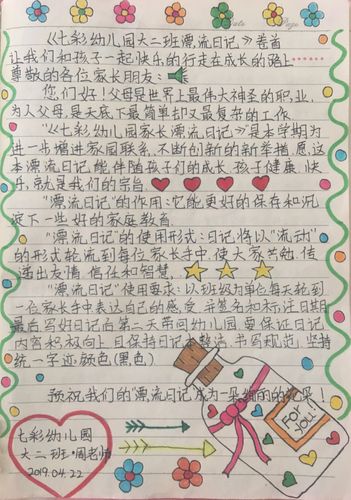 《七彩幼儿园大二班漂流日记》卷首
让我们和孩子一起快乐的行走在成长的路上……
尊敬的各位家长朋友：
您们好！父母是世界上最伟大神圣的职业，
为人父母，是天底下最简单却又最复杂的工作
《七彩幼儿园家长漂流日记》是本学期为
进一步增进家园联系，不断创新的新举措，愿这
本漂流日记，能伴随孩子们的成长，孩子健康、快
乐，就是我们的宗旨
“漂流日记”的作用：它能更好的保存和沉
淀下一些好的家庭教育
“漂流日记”的使用形式：日记将以“流动”
的形式轮流到每位家长手中，使大家共勉，传
递出友情、信任和智慧，
“漂流日记”使用要求：以班级为单位每天轮到
一位家长手中表达自己的感受，并签名和标注日期
最后写好日记后第二天带回幼儿园，要保证日记
内容积极向上，且保持日记的整洁，书写规范，坚持
统一字迹颜色（黑色）
预祝我们的“漂流日记”成为一朵绚丽的花朵
For you!
七彩幼儿园
大二班·周老师
2019.04.22